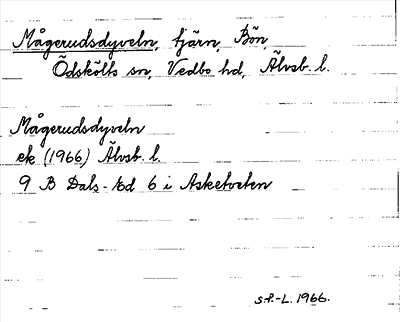 Mågerudsdyveln, tjärn, Bön,
Ödskölts sn, Vedbo hd, Älvsb. l.
Mågerudsdyveln
ek (1966) Älvsb. l.
9 B Dals-Ed 6 i Asketveten
S.P.-L. 1966.